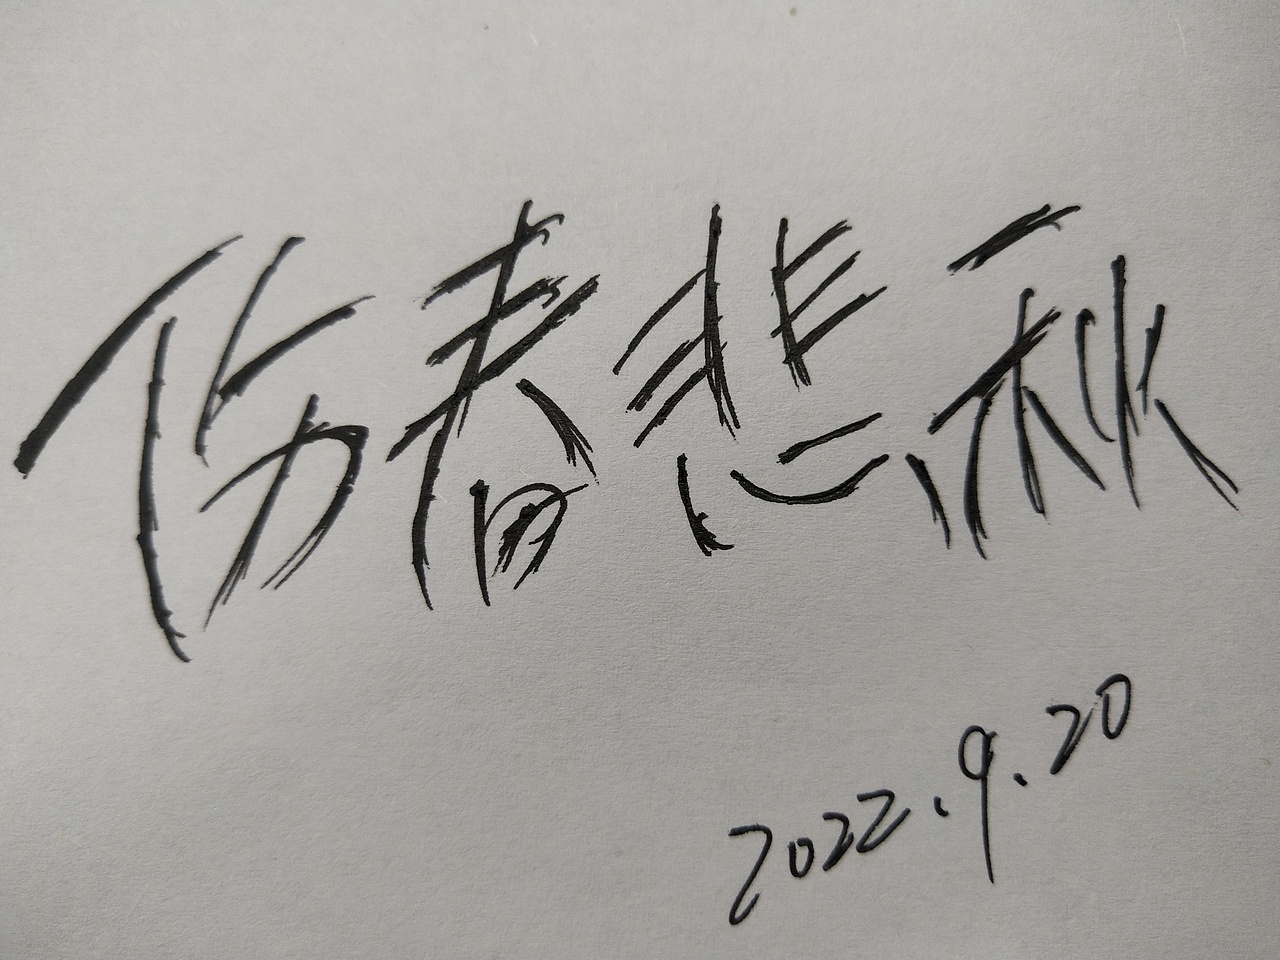 伤春悲秋
2022.9.20